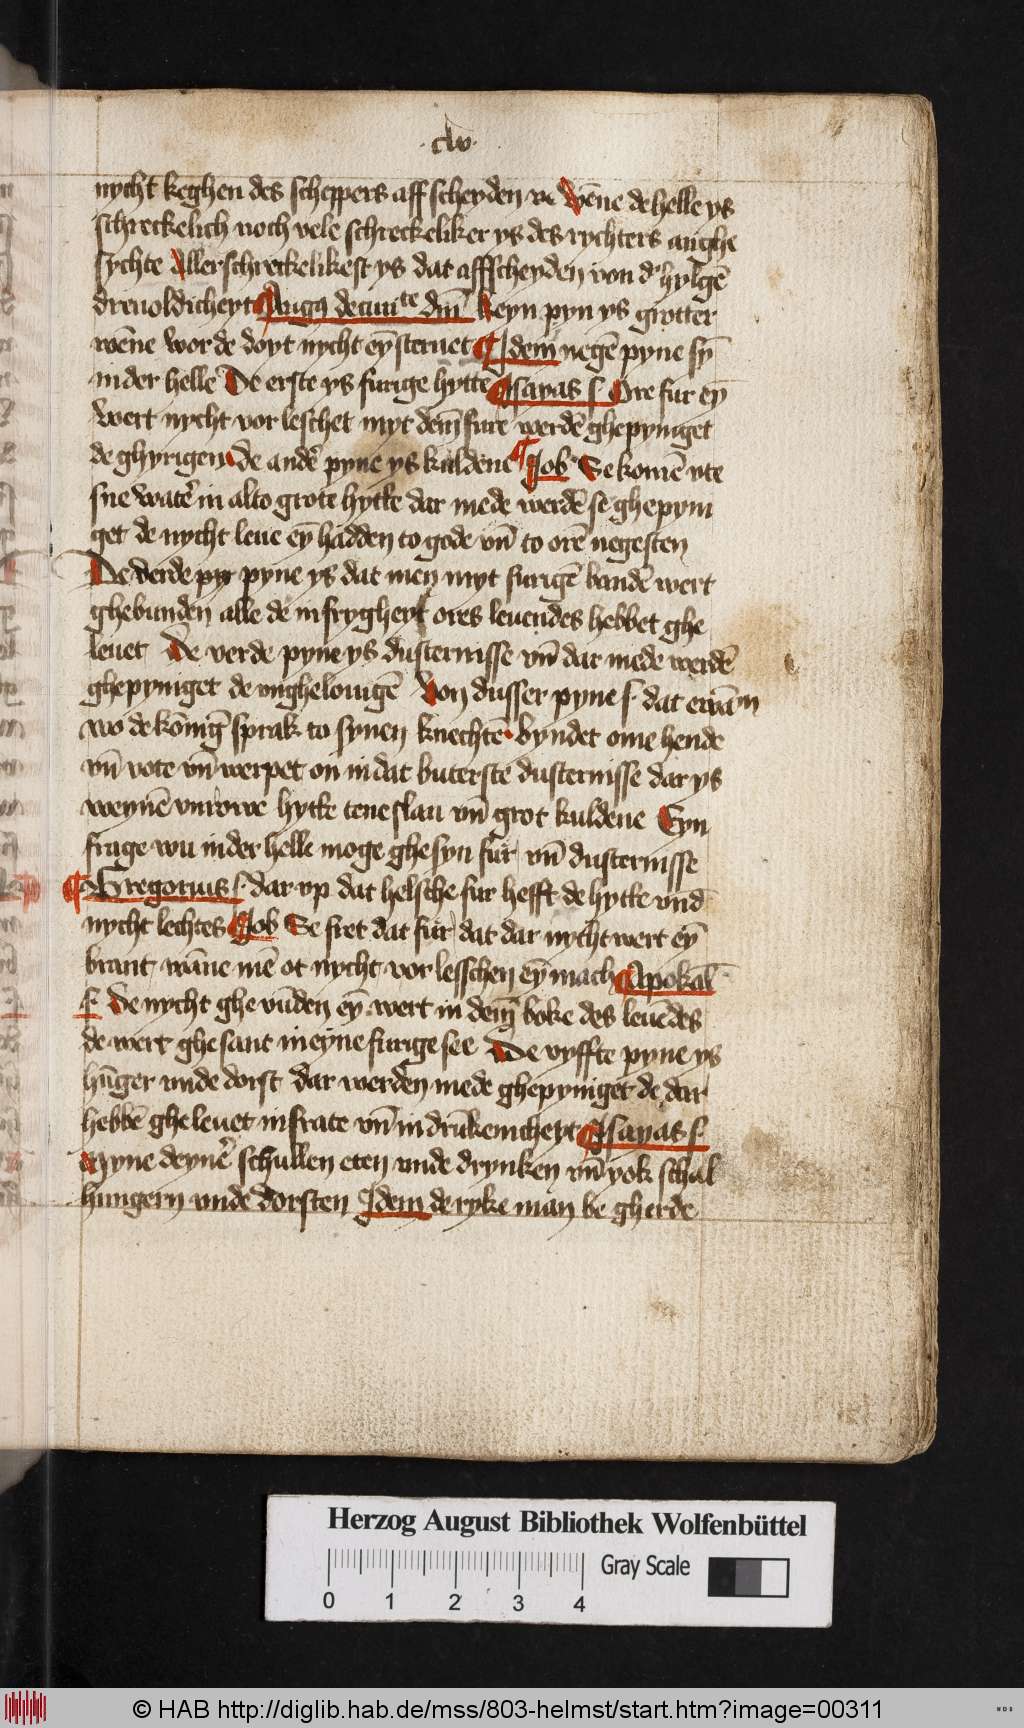 ·clv·
nycht keghen des scheppers aff scheyden wēne de helle ys
schreckelich noch vele schreckeliker ys des rychters anghe
sychte Allerschreckelikest ys dat affscheyden von dˀ hylgē
dreuoldicheyt ¶ Augꝫ de ciuiᵗᵉ dīn keyn pyn ys grotter
wēne wor de doyt nycht eȳ steruet ¶ Idem negē pyne sȳ
in der helle De erste ys furige hytte ¶ Isayas s. Ore fur eȳ
wert nycht vor leschet myt dem̄ fure werdē ghepyniget
de ghyrigen de andˀe pyne ys kuldene ¶ Job Se komē vte
sne watˀe in alto grote hytte dar mede werdē se ghepyni
get de nycht leue eȳ hadden to gode vn̄ to orē negesten
De derde pyr pyne ys dat men myt furigē bandē wert
ghebunden alle de in frygheyt ores leuendes hebbet ghe
leuet De verde pyne ys dusternisse vn̄ dar mede werdē
ghepyniget de vnghelouigē Von dusser pyne s. dat ewām
wo de kōnīg sprak to synen knechtē byndet ome hende
vn̄ vote vn̄ werpet on in dat buterste dusternisse dar ys
weynē vnrowe hytte tene slan vn̄ grot kuldene Eyn
frage wu in der helle moge ghe syn fur vn̄ dusternisse
¶ Gregorius s. dar vp dat helsche fur hefft de hytte vnd̄
nycht lechtes ¶ Job Se fret dat fur dat dar nycht wert eȳ
brant wāne mē ot nycht vor lesschen eȳ mach ¶ Apokal̄
s. De nycht ghe vūden eȳ wert in dem̄ boke des leuēdes
de wert ghe sant in eyne furige see De vyffte pyne ys
hūger vnde dorst dar werden mede ghepyniget de dar
hebbē ghe leuet in frate vn̄ in drūkenicheyt ¶ Isayas s.
Myne deynēˀ schullen eten vnde drynken vn̄ yok schal
hungern vnde dorsten Idem de ryke man be gherde
Herzog August Bibliothek Wolfenbüttel
Gray Scale
0 1 2 3 4
© HAB http://diglib.hab.de/mss/803-helmst/start.htm?image=00311